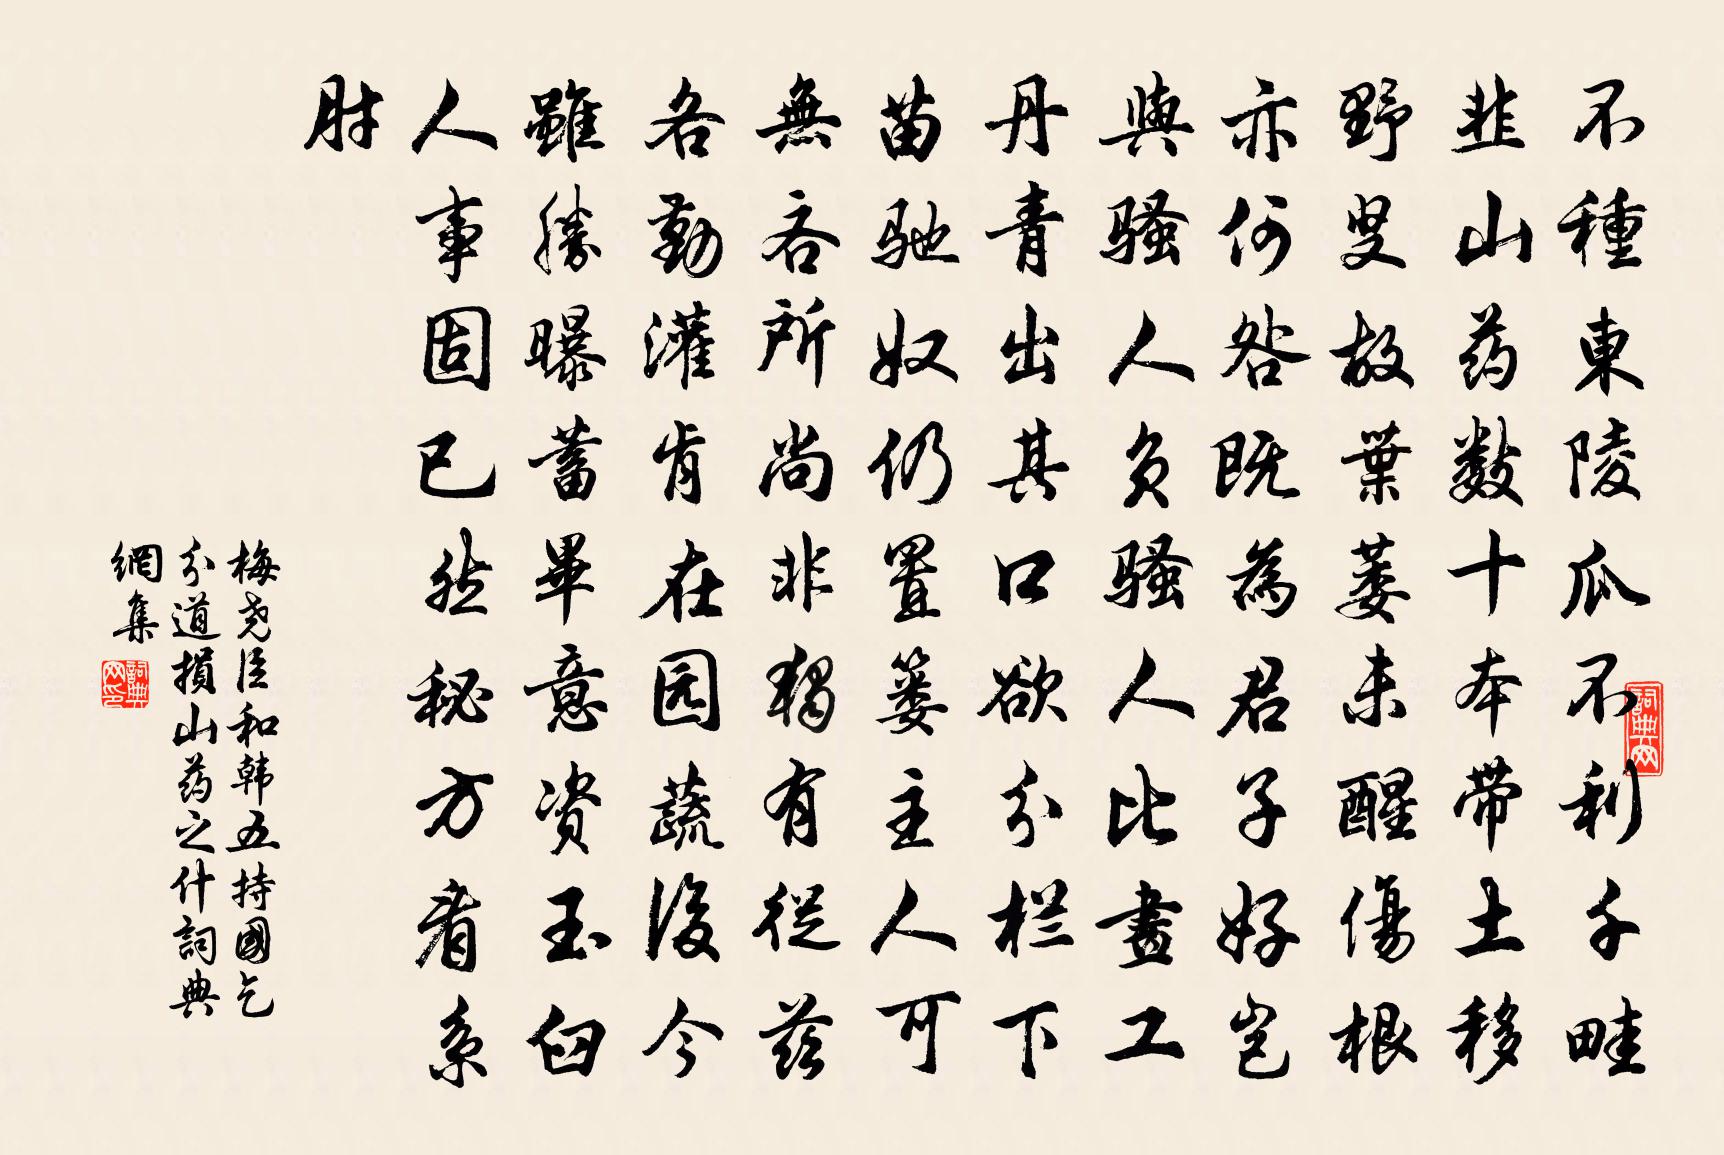 不種東陵瓜不利千畦
韭山药数十本带土移
野叟故葉萎未醒傷根
亦何咎既為君子好豈
與骚人負骚人比畫工
丹青出其口欲分栏下
苗馳奴仍置篓主人可
無吝所尚非独有從兹
各勤灌肯在园蔬後今
雖勝曝蓄畢意资玉臼
人事固已然秘方看系
肘
梅尧臣和韩五持國乞
分道損山药之什詞典
網集
詞典網
詞典網印